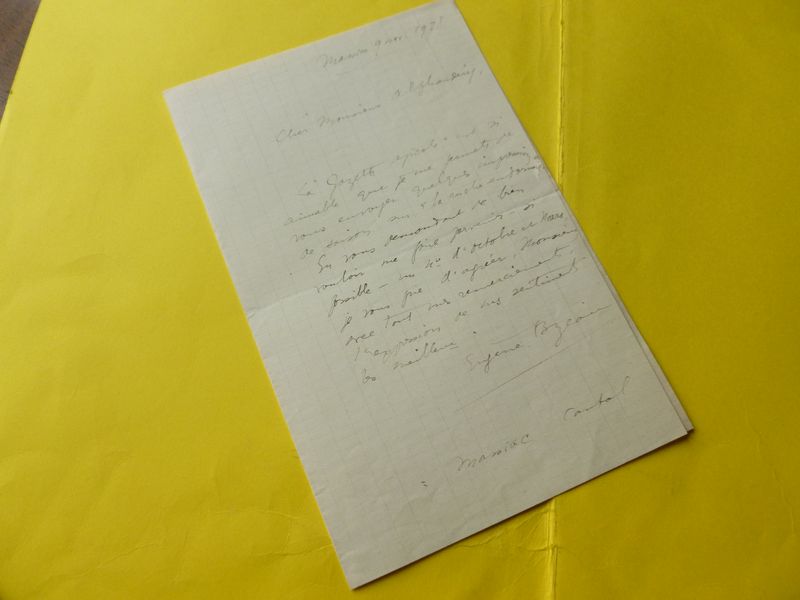 Massiac 9 nov. 192
Cher Monsieur
La Gazette apicole est si
aimable que je me permets de
vous envoyer quelques impressions
de saison sur "la ruche
En vous demandant de bien
vouloir me faire parvenir si
possible - un No d'octobre et
je vous prie d'agréer, Monsieur
avec tous mes remerciements,
l'expression de mes sentiments
les meilleurs.
Eugène
Massiac Cantal